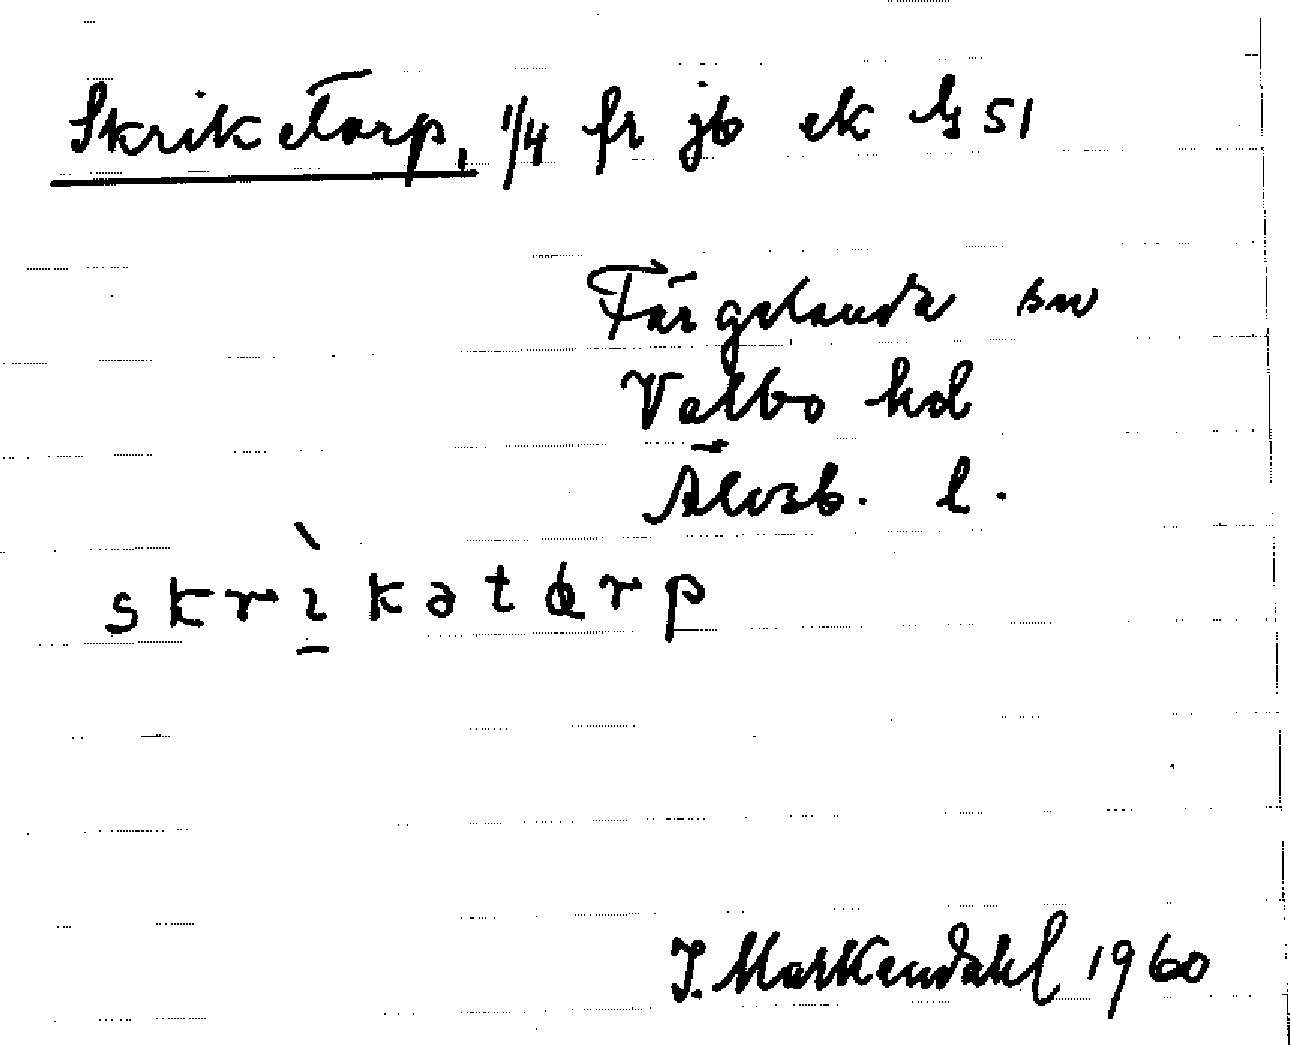 Skriketorp, 1/4 fr jb ek bl 51
Färgelanda sn
Valbo hd
Älvsb. l.
skrìkətɸrp
J. Markendahl 1960